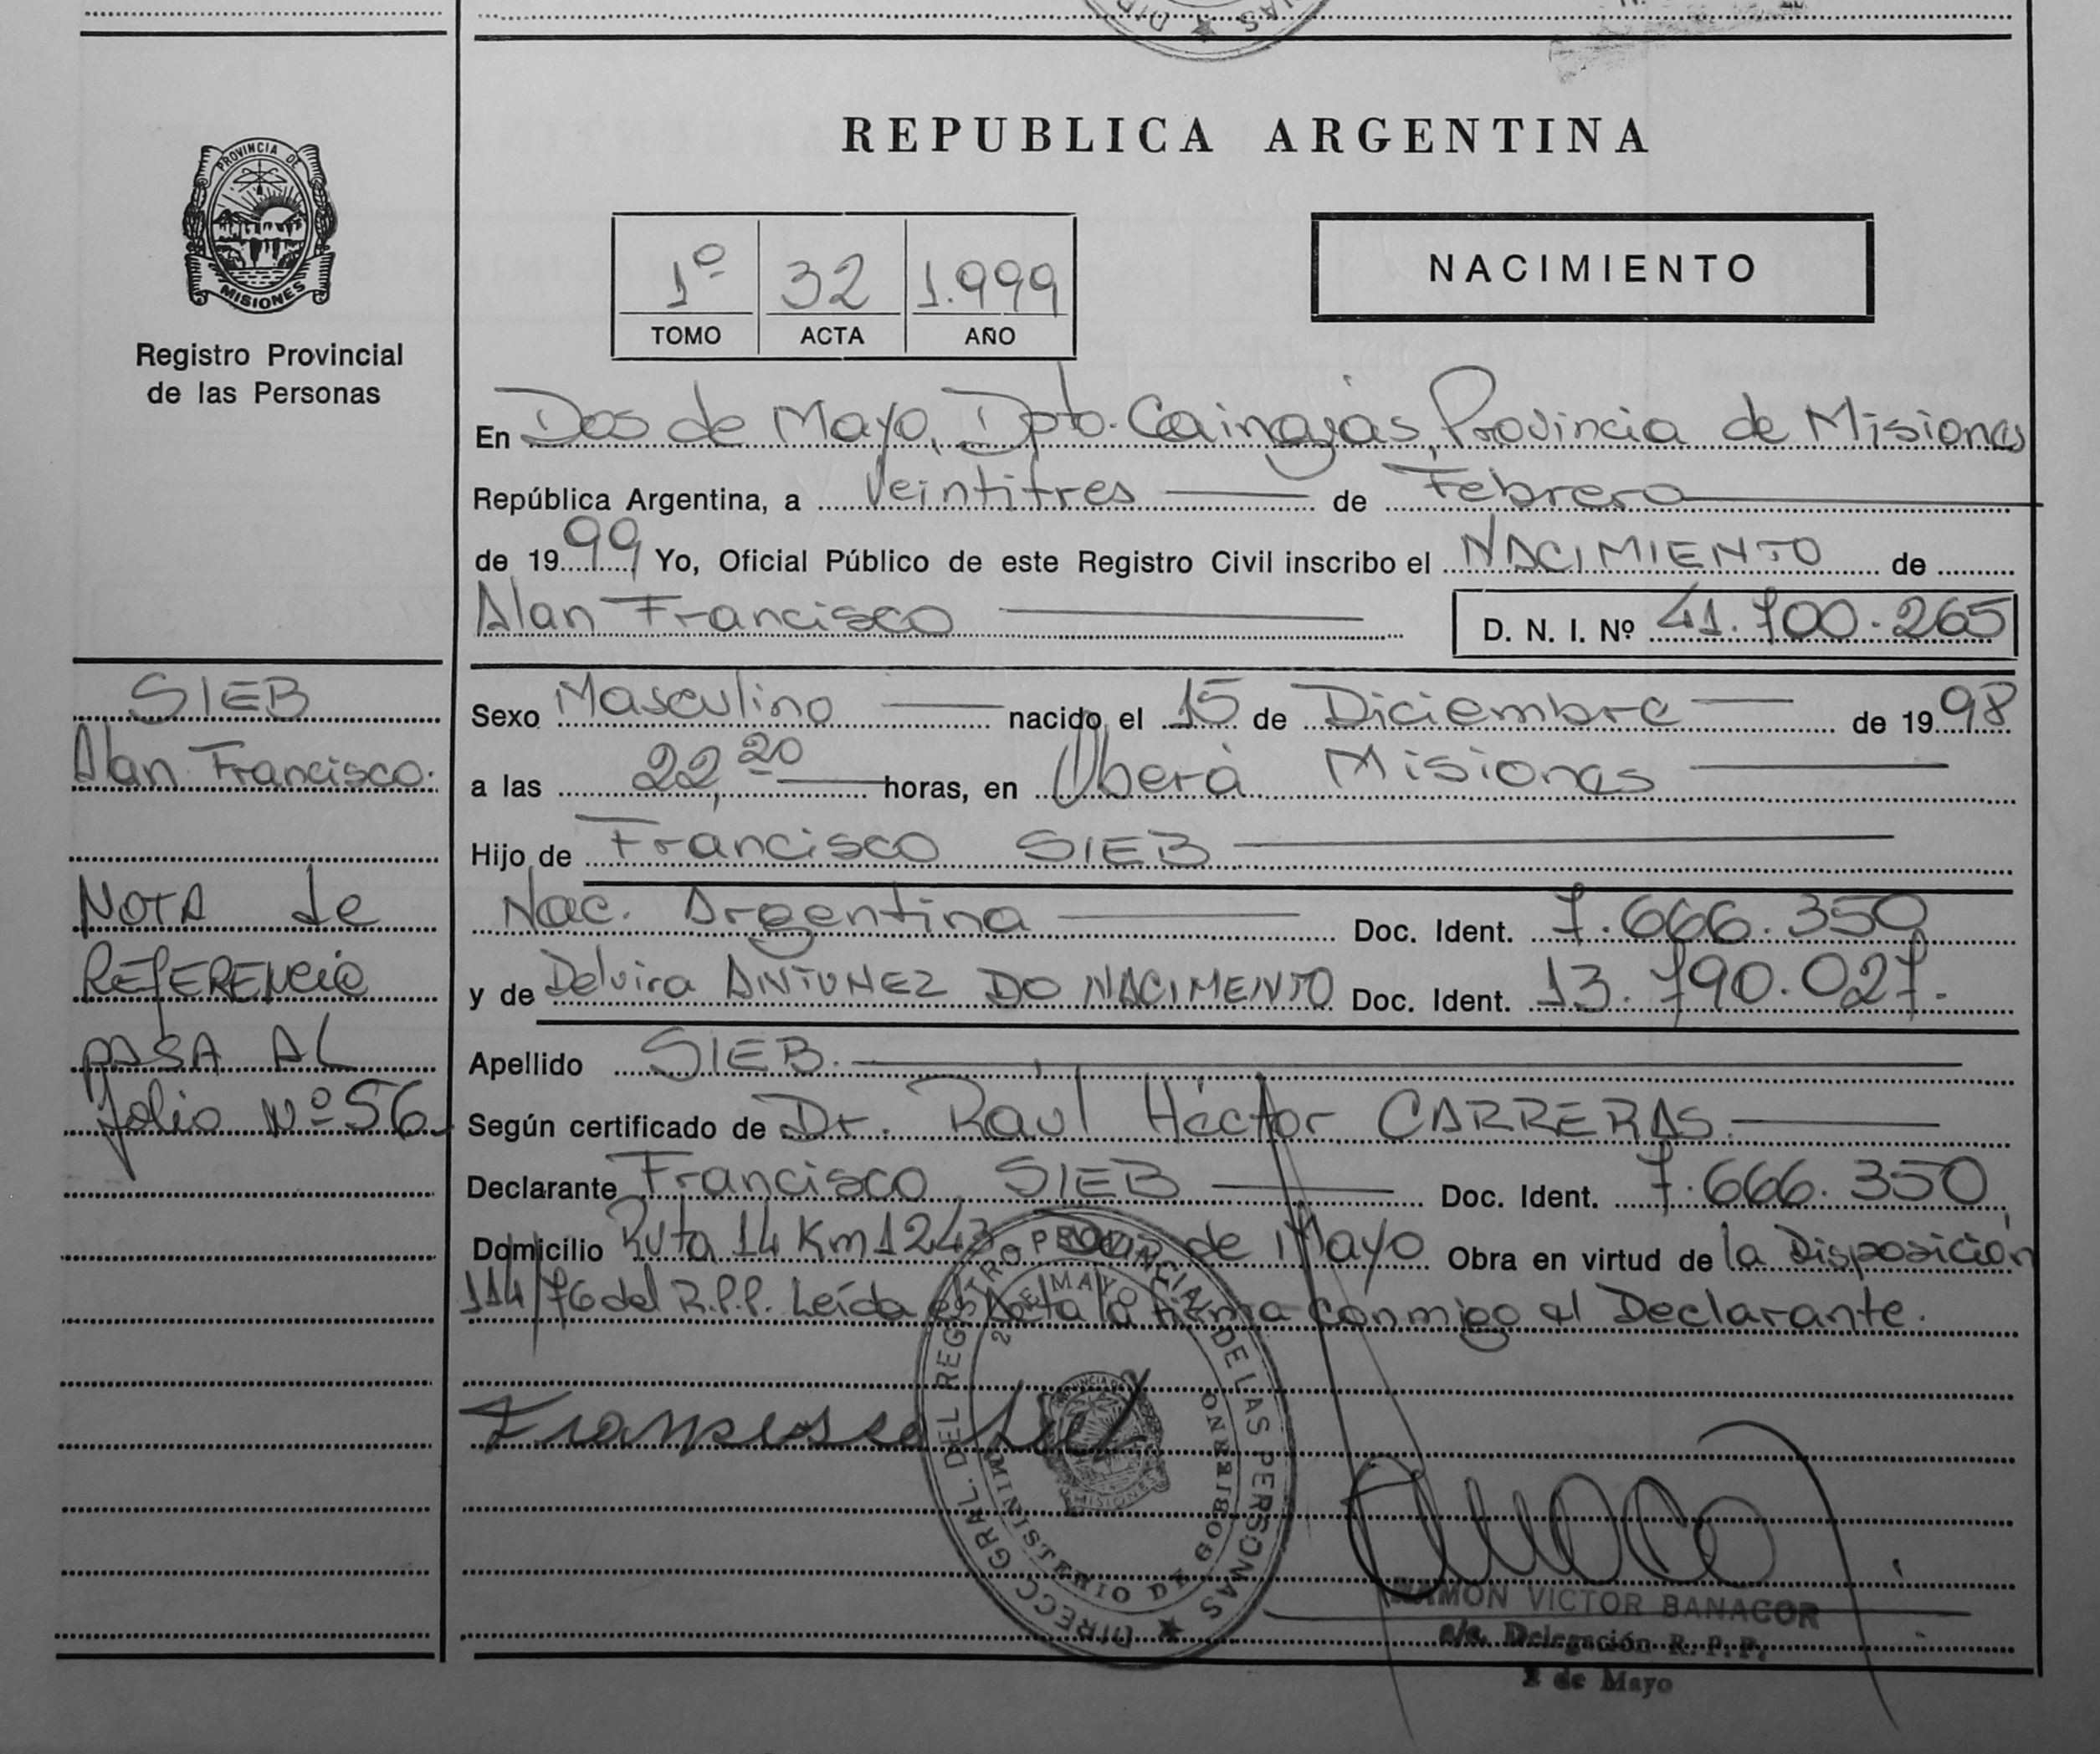 PROVINCIA DE
MISIONES
Registro Provincial
de las Personas
SIEB
Alan Francisco.
NOTA de
REFERENCIA
PASA AL
folio Nº 56
REPUBLICA ARGENTINA
1º 32 1.999
TOMO ACTA AÑO
NACIMIENTO
En Dos de Mayo, Dpto. Cainguás, Provincia de Misiones
República Argentina, a Veintitres de Febrero
de 1999 Yo, Oficial Público de este Registro Civil inscribo el NACIMIENTO de
Alan Francisco D. N. I. Nº 41.700.265
Sexo Masculino nacido el 15 de Diciembre de 1998
a las 22,20 horas, en Oberá Misiones
Hijo de Francisco SIEB
Nac. Argentina Doc. Ident. 7.666.350
y de Delvira ANTUNEZ DO NACIMENTO Doc. Ident. 13.790.027.
Apellido SIEB.
Según certificado de Dr. Raúl Héctor CARRERAS.
Declarante Francisco SIEB Doc. Ident. 7.666.350
Domicilio Ruta 14 Km 1243 Dos de Mayo Obra en virtud de la Disposición
114/76 del R.P.P. Leída el Acta la firma conmigo el Declarante.
DIRECC. GRAL. DEL REGISTRO PROVINCIAL DE LAS PERSONAS
2 DE MAYO
MINISTERIO DE GOBIERNO
RAMON VICTOR BANACOR
a/c. Delegación R. P. P.
2 de Mayo